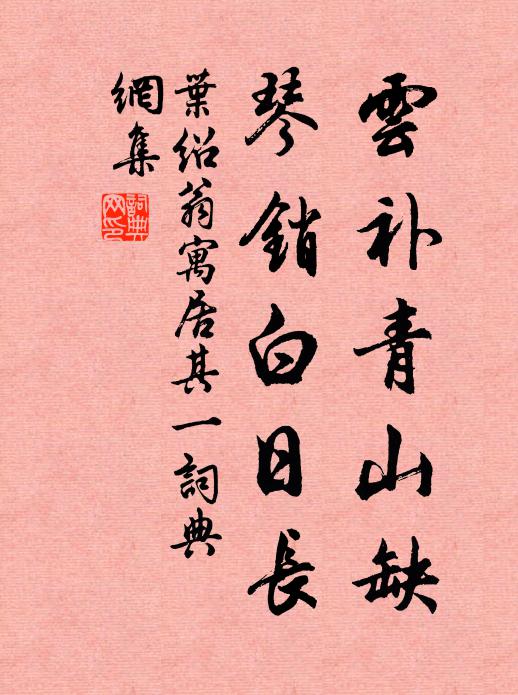 雲补青山缺
琴銷白日長
葉紹翁寓居其一詞典
網集
詞典网印